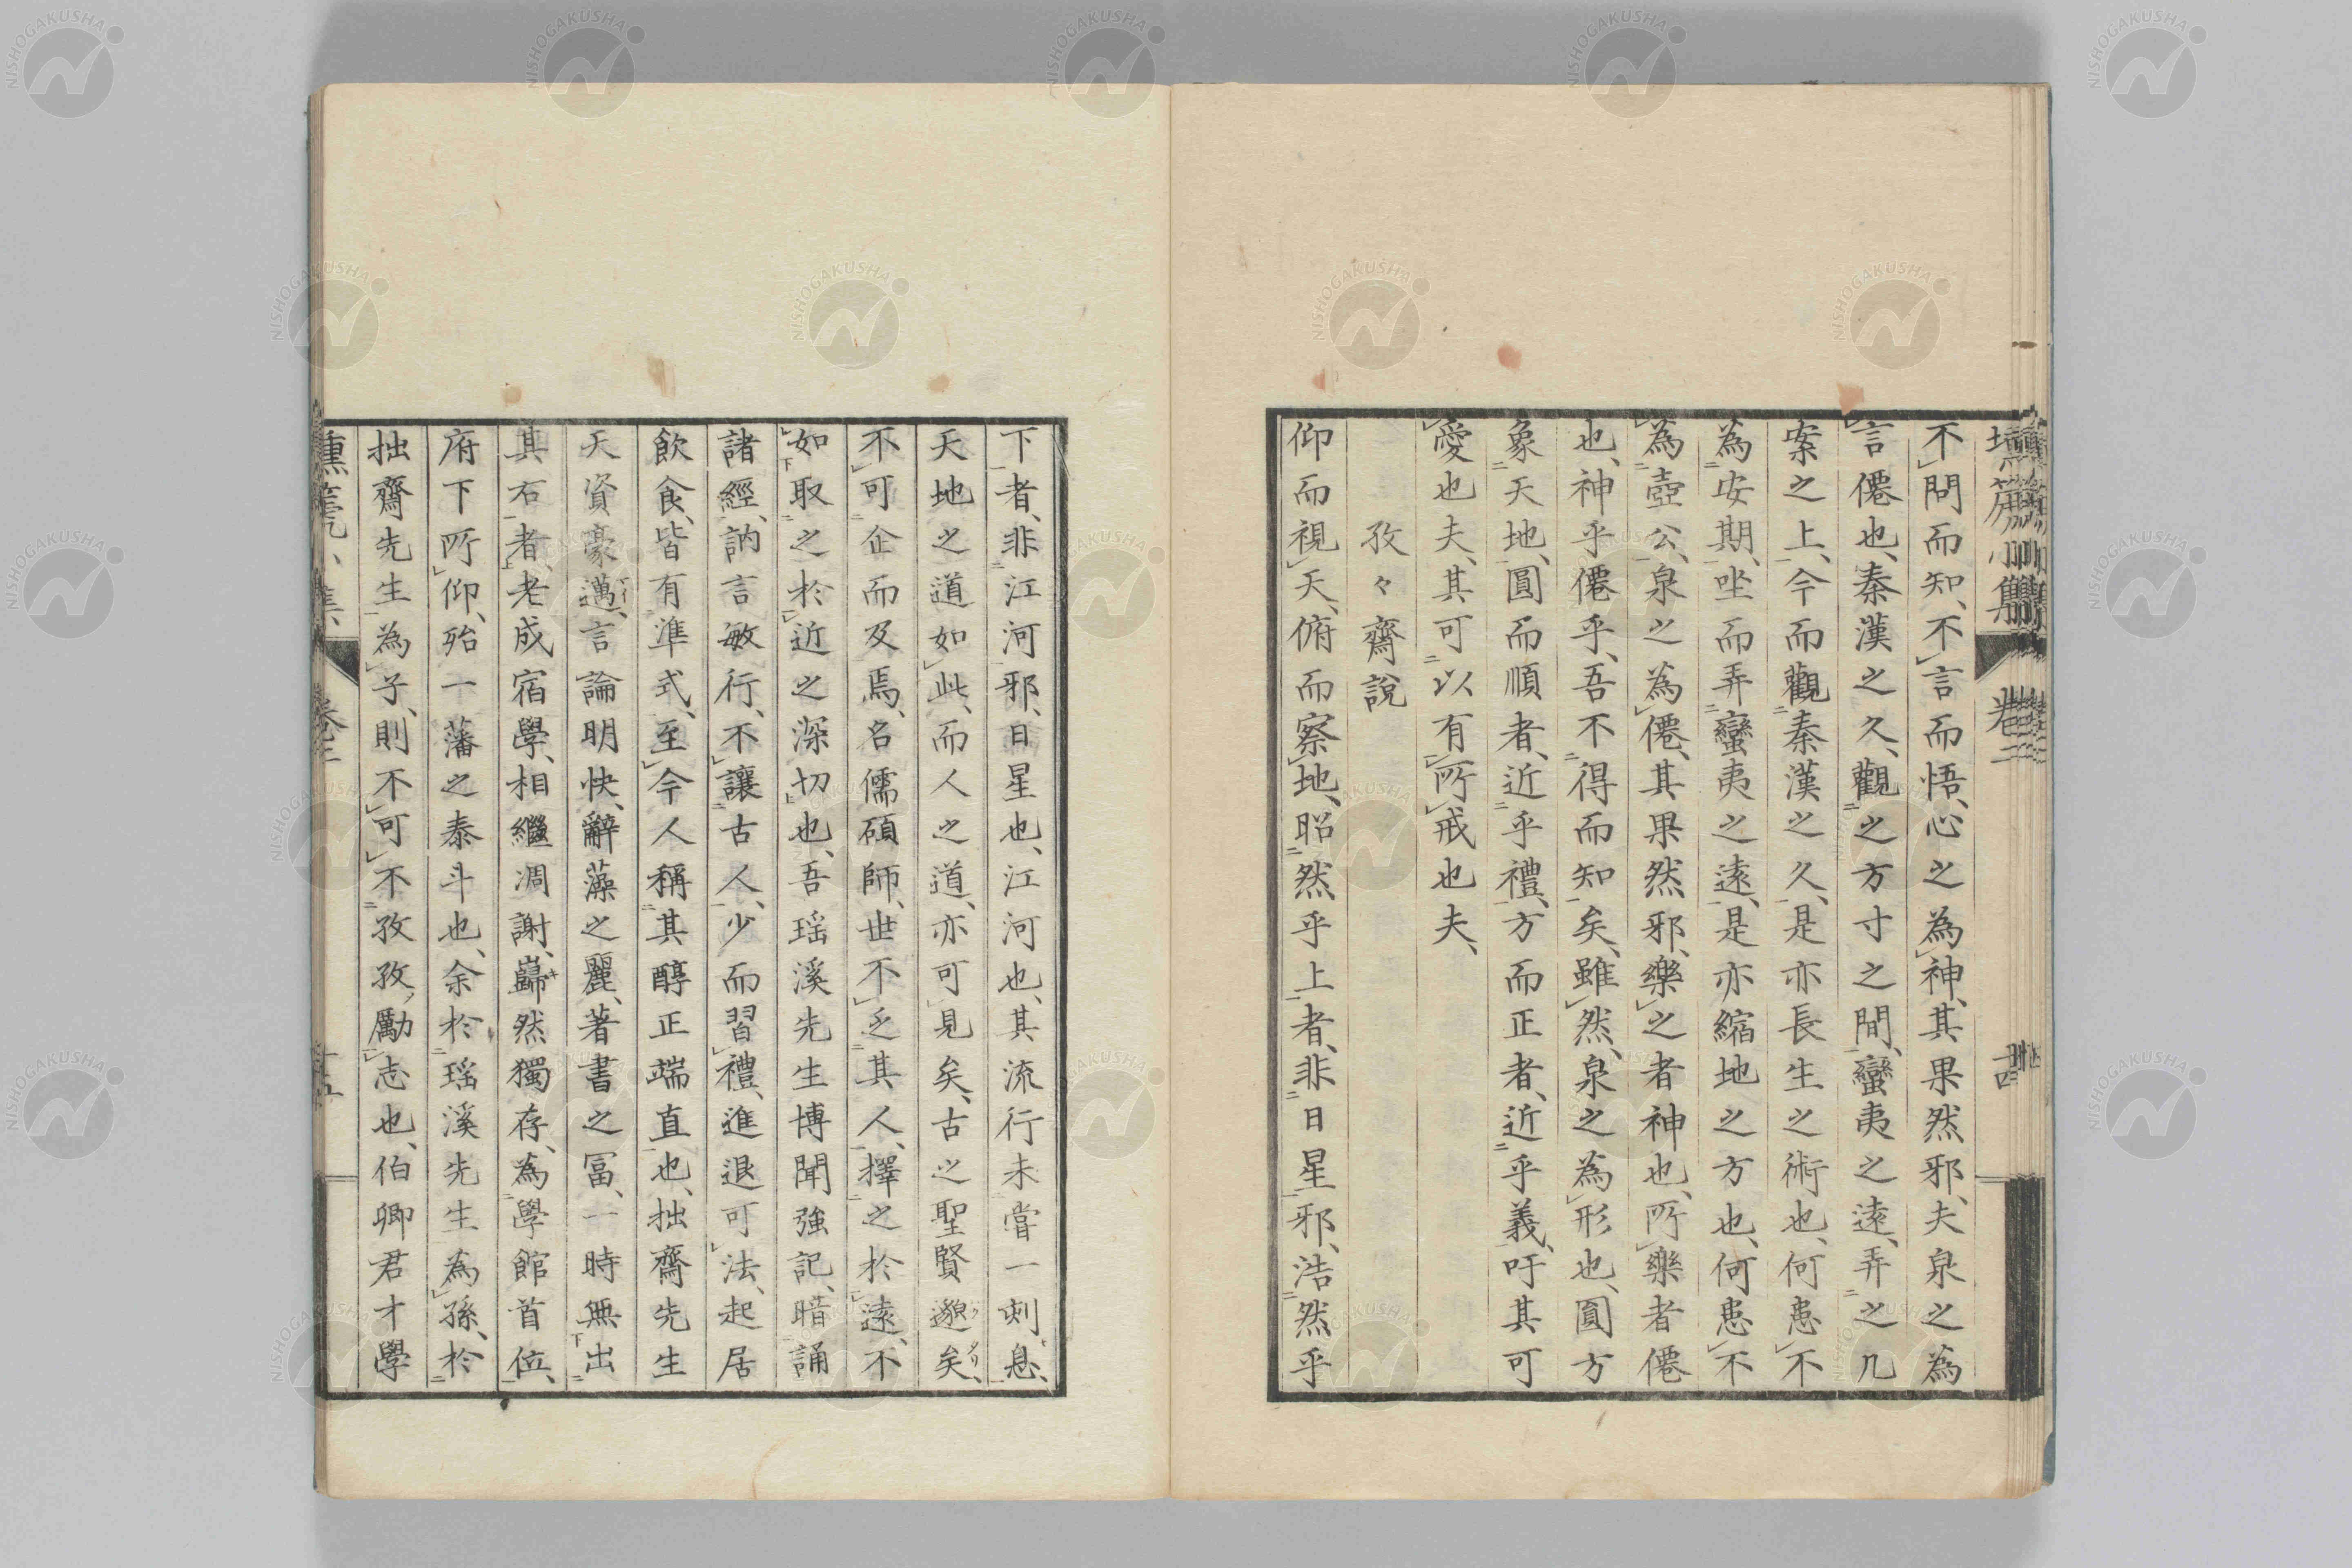 不問而知、不言而悟、心之為神、其果然邪、夫泉之為
言僊也、秦漢之久、觀之方寸之間、蠻夷之遠、弄之几
案之上、今而觀秦漢之久、是亦長生之術也、何患不
為安期、坐而弄蠻夷之遠、是亦縮地之方也、何患不
為壺公、泉之為僊、其果然邪、樂之者神也、所樂者僊
也、神乎僊乎、吾不得而知矣、雖然、泉之為形也、圓方
象天地、圓而順者、近乎禮、方而正者、近乎義、吁其可
愛也夫、其可以有所戒也夫、
孜々齋說
仰而視天、俯而察地、昭然乎上者、非日星邪、浩然乎
下者、非江河邪、日星也、江河也、其流行未嘗一刻息、
天地之道如此、而人之道、亦可見矣、古之聖賢邈矣、
不可企而及焉、名儒碩師、世不乏其人、擇之於遠、不
如取之於近之深切也、吾瑶溪先生博聞強記、暗誦
諸經、訥言敏行、不讓古人、少而習禮、進退可法、起居
飲食、皆有準式、至今人稱其醇正端直也、拙齋先生
天資豪邁、言論明快、辭藻之麗、著書之富、一時無出
其右者、老成宿學、相繼凋謝、巋然獨存、為學館首位、
府下所仰、殆一藩之泰斗也、余於瑶溪先生為孫、於
拙齋先生為子、則不可不孜孜勵志也、伯卿君才學
NISHOGAKUSHA